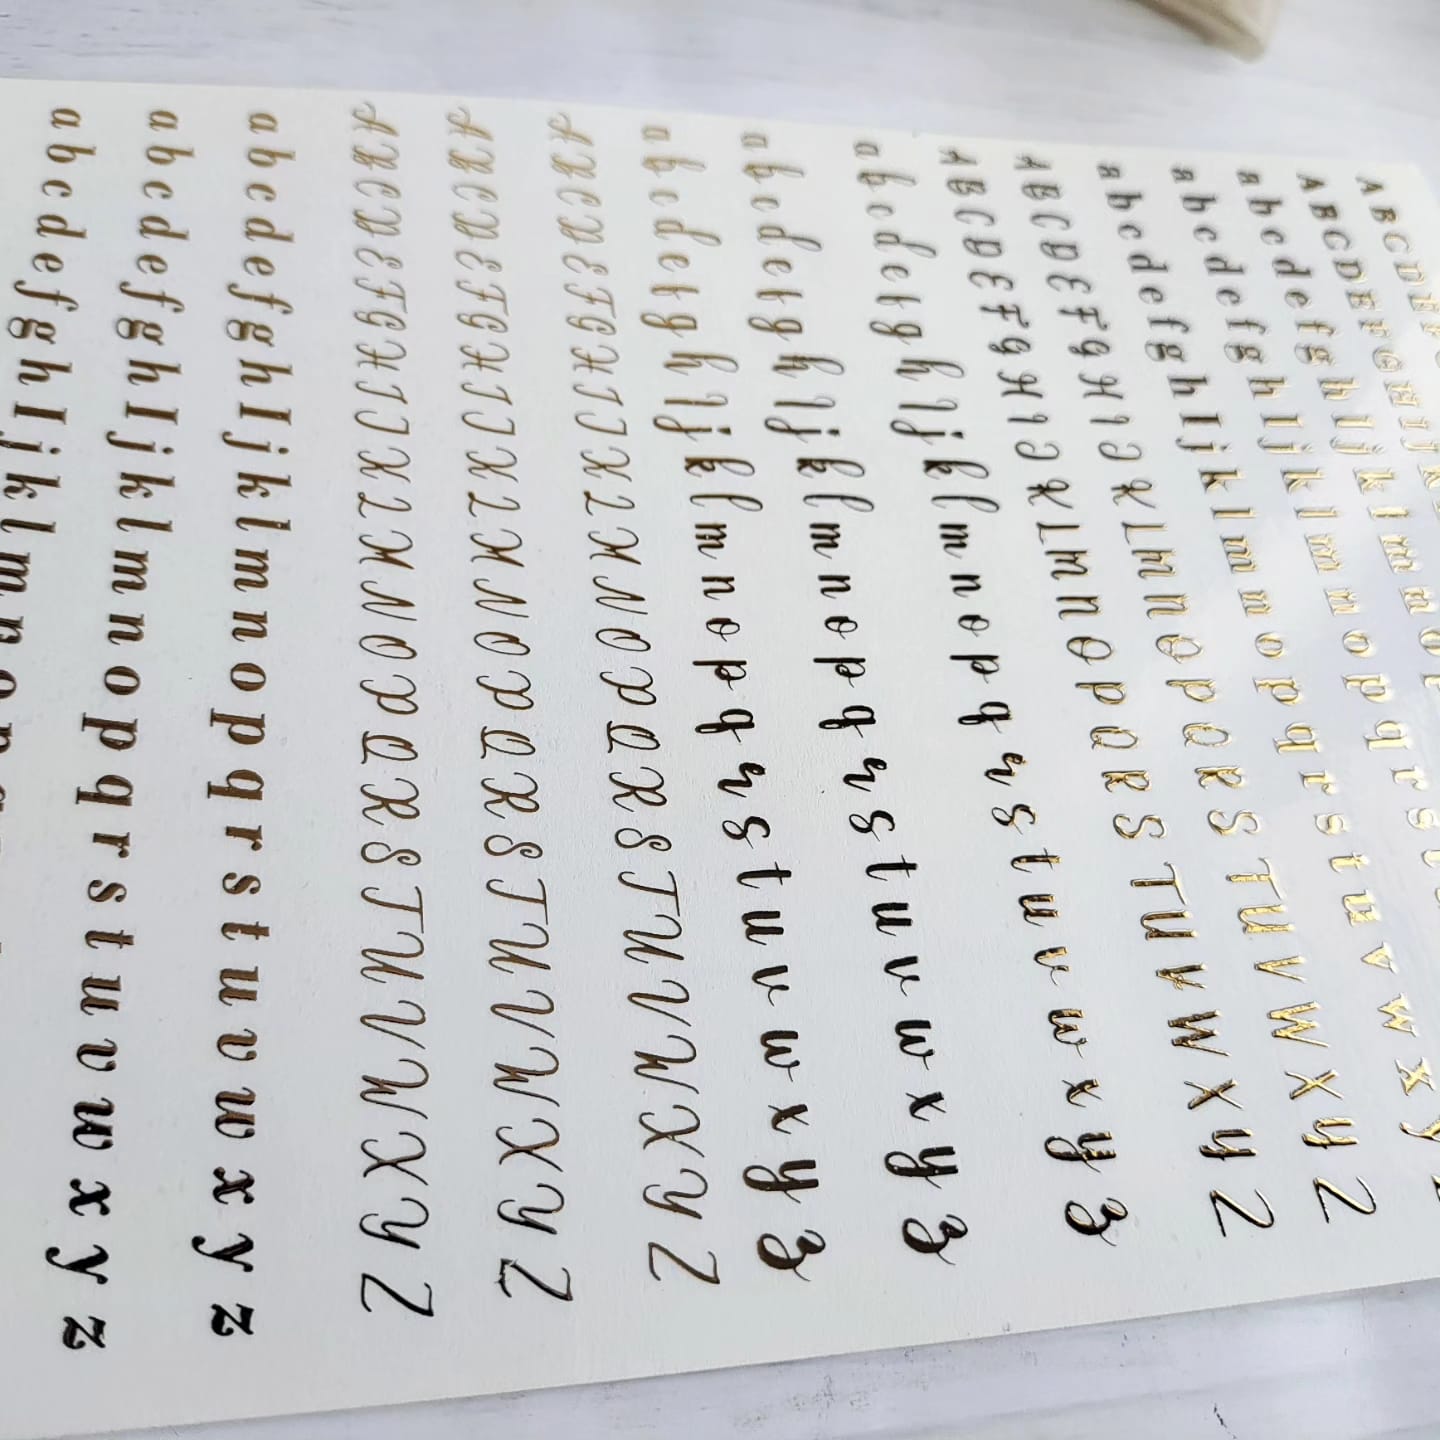 A B C D E F
A B C D E F G H I J K
a b c d e f g h I j k l m n o p
a b c d e f g h I j k l m n o p q r s t
a b c d e f g h I j k l m n o p q r s t u v w x y z
A B C D E F G H I J K L M N O P Q R S T U V W X Y Z
A B C D E F G H I J K L M N O P Q R S T U V W X Y Z
a b c d e f g h I j k l m n o p q r s t u v w x y z
a b c d e f g h I j k l m n o p q r s t u v w x y z
a b c d e f g h I j k l m n o p q r s t u v w x y z
A B C D E F G H I J K L M N O P Q R S T U V W X Y Z
A B C D E F G H I J K L M N O P Q R S T U V W X Y Z
A B C D E F G H I J K L M N O P Q R S T U V W X Y Z
a b c d e f g h I j k l m n o p q r s t u v w x y z
a b c d e f g h I j k l m n o p q r s t u v w x y z
a b c d e f g h I j k l m n o p